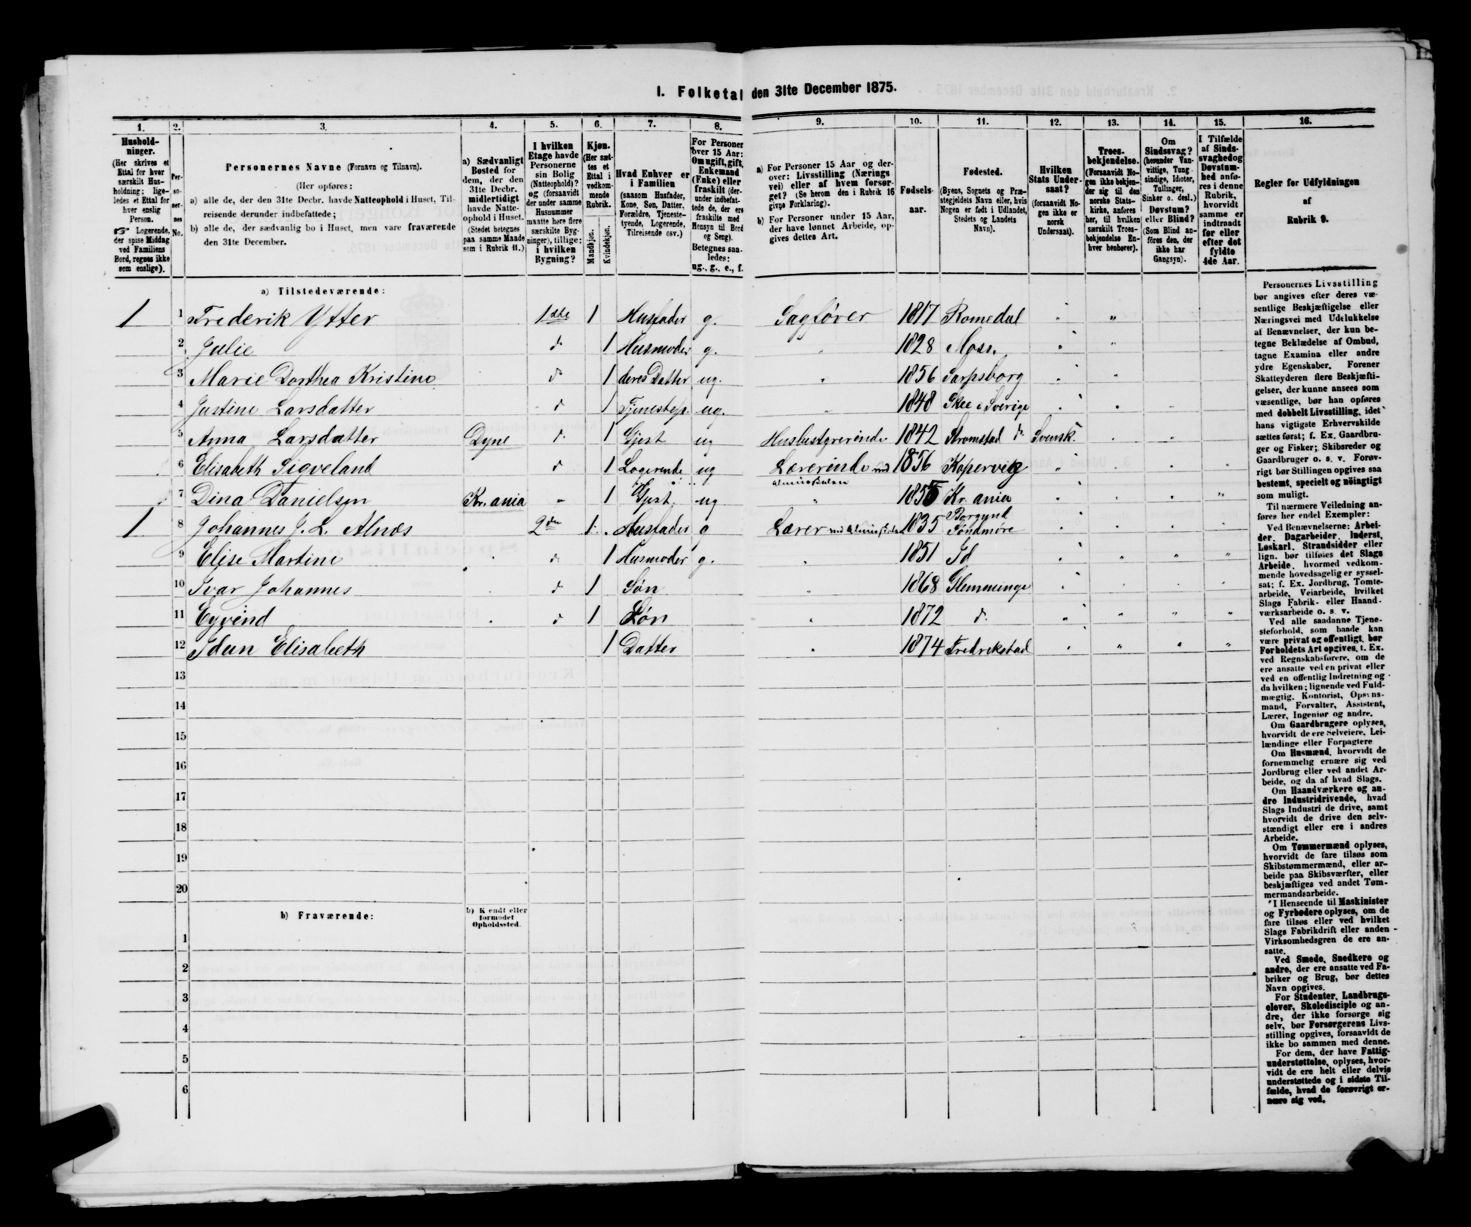 I. Folketal den 31te December 1875.
1. 2. 3. 4. 5. 6. 7. 8. 9. 10. 11. 12. 13. 14. 15. 16.
Husholdninger.
(Her skrives et Ettal for hver særskilt Husholdning; ligeledes et Ettal for hver enslig Person.
Logerende, der spise Middag ved Familiens Bord, regnes ikke som enslige).
Personernes No.
Personernes Navne (Fornavn og Tilnavn).
(Her opføres:
a) alle de, der den 31te Decbr. havde Natteophold i Huset, Tilreisende derunder indbefattede;
b) alle de, der sædvanlig bo i Huset, men vare fraværende den 31te December.
a) Sædvanligt Bosted for dem, der den 31te Decbr. midlertidigt havde Natteophold i Huset.
(Stedet betegnes paa samme Maade som i Rubrik 11.)
I hvilken Etage havde Personerne sin Bolig (Natteophold)? og (forsaavidt der under samme Husnummer maatte høre flere særskilte Bygninger), tillige: i hvilken Bygning?
Kjøn.
(Her sættes et Ettal i vedkommende Rubrik.
Mandkjøn. Kvindekjøn.
Hvad Enhver er i Familien
(saasom Husfader, Kone, Søn, Datter, Forældre, Tjenestetyende, Logerende, Tilreisende osv.)
For Personer over 15 Aar: Om ugift, gift, Enkemand (Enke) eller fraskilt (derunder indbefattede de, der ere fraskilte med Hensyn til Bord og Seng).
Betegnes saaledes: ug., g., e., f.
a) For Personer 15 Aar og derover: Livsstilling (Nærings vei) eller af hvem forsørget? (Se herom den i Rubrik 16 givne Forklaring).
b) For Personer under 15 Aar, der have lønnet Arbeide, opgives dettes Art.
Fødselsaar.
Fødested.
(Byens, Sognets og Præstegjeldets Navn eller, hvis Nogen er født i Udlandet, Stedets og Landets Navn).
Hvilken Stats Undersaat?
(forsaavidt Nogen ikke er norsk Undersaat).
Troesbekjendelse.
(Forsaavidt Nogen ikke bekjender sig til den norske Statskirke, anføres her, til hvilken særskilt Troesbekjendelse Enhver henhører).
Om Sindssvag? (herunder Vanvittige, Tungsindige, Idioter, Tullinger, Sinker o. desl.) Døvstum? eller Blind? (Som Blind anføres den, der ikke har Gangsyn).
I Tilfælde af Sindssvaghed og Døvstumhed anføres i denne Rubrik, hvorvidt samme er indtraadt før eller efter det fyldte 4de Aar.
Regler for Udfyldningen af Rubrik 9.
a) Tilstedeværende:
1 1 Frederik Ytter 1ste 1 Husfader g. Sagfører 1817 Romedal
2 Julie d 1 Husmoder g. 1828 Moss
3 Marie Dorthea Kristine d 1 deres Datter ug. 1856 Sarpsborg
4 Justine Larsdatter d 1 ug. 1848 Skee i Sverige
5 Anna Larsdatter Dyne d. 1 Gjest ug 1842 Strømstad d. Svensk
6 Elisabeth Sigveland d. 1 Logerende ug Lærerinde 1856 Kopervig
7 Dina Danielsen Kr.ania 1 Gjest ug 1855 Kr.ania
1 8 Johannes J. L. Alnæs 2den 1 Husfader g Lærer 1835 Borgund Søndmøre
9 Elise Martine d. 1 Husmoder g. 1851 Id
10 Ivar Johannes d 1 Søn 1868 Glemminge
11 Eyvind d 1 Søn 1872 d.
12 Idun Elisabeth 1 Datter 1874 Fredrikstad
13
14
15
16
17
18
19
20
b) Fraværende: b) Kjendt eller formodet Opholdssted.
1
2
3
4
5
6
Personernes Livsstilling bør angives efter deres væsentlige Beskjæftigelse eller Næringsvei med Udelukkelse af Benævnelser, der kun betegne Beklædelse af Ombud, tagne Examina eller andre ydre Egenskaber. Forener Skatteyderen flere Beskjæftigelser, der kunne ansees som væsentlige, bør han opføres med dobbelt Livsstilling, idet hans vigtigste Erhvervskilde sættes først; f. Ex. Gaardbruger og Fisker; Skibsreder og Gaardbruger o. s. v. Forøvrigt bør Stillingen opgives saa bestemt, specielt og nøiagtigt som muligt.
Til nærmere Veiledning anføres her endel Exempler:
Ved Benævnelserne: Arbeider, Dagarbeider, Inderst, Løskarl, Strandsidder eller lign. bør tilføies det Slags Arbeide, hvormed vedkommende hovedsagelig er sysselsat; f. Ex. Jordbrug, Tomtearbeide, Veiarbeide, hvilket Slags Fabrik- eller Haandværksarbeide o. s. v.
Ved alle saadanne Tjenesteforhold, som baade kan være privat og offentligt, bør Forholdets Art opgives, t. Ex. ved Regnskabsførere, om de ere ansatte ved en privat eller ved en offentlig Indretning og da hvilken; lignende ved Fuldmægtig, Kontorist, Opsynsmand, Forvalter, Assistent, Lærer, Ingeniør og andre.
Om Gaardbrugere oplyses, hvorvidt de ere Selveiere, Leilændinge eller Forpagtere
Om Husmænd, hvorvidt de fornemmelig ernære sig ved Jordbrug eller ved andet Arbeide, og da af hvad Slags.
Om Haandværkere og andre Industridrivende, hvad Slags Industri de drive, samt hvorvidt de drive den selvstændigt eller ere i andres Arbeide.
Om Tømmermænd oplyses, hvorvidt de fare tilsøs som Skibstømmermænd, eller arbeide paa Skibsværfter, eller beskjæftiges ved andet Tømmermandsarbeide.
I Henseende til Maskinister og Fyrbødere oplyses, om de fare tilsøs eller ved hvilket Slags Fabrikdrift eller anden Virksomhedsgren de ere ansatte.
Ved Smede, Snedkere og andre, der ere ansatte ved Fabriker og Brug, bør dettes Navn opgives.
For Studenter, Landbrugselever, Skoledisciple og andre, der ikke forsørge sig selv, bør Forsørgerens Livsstilling opgives, forsaavidt de ikke bo sammen med denne.
For dem, der have Fattigunderstøttelse, oplyses, hvorvidt de ere helt eller delvis understøttede og i sidste Tilfælde, hvad de forøvrigt ernære sig ved.